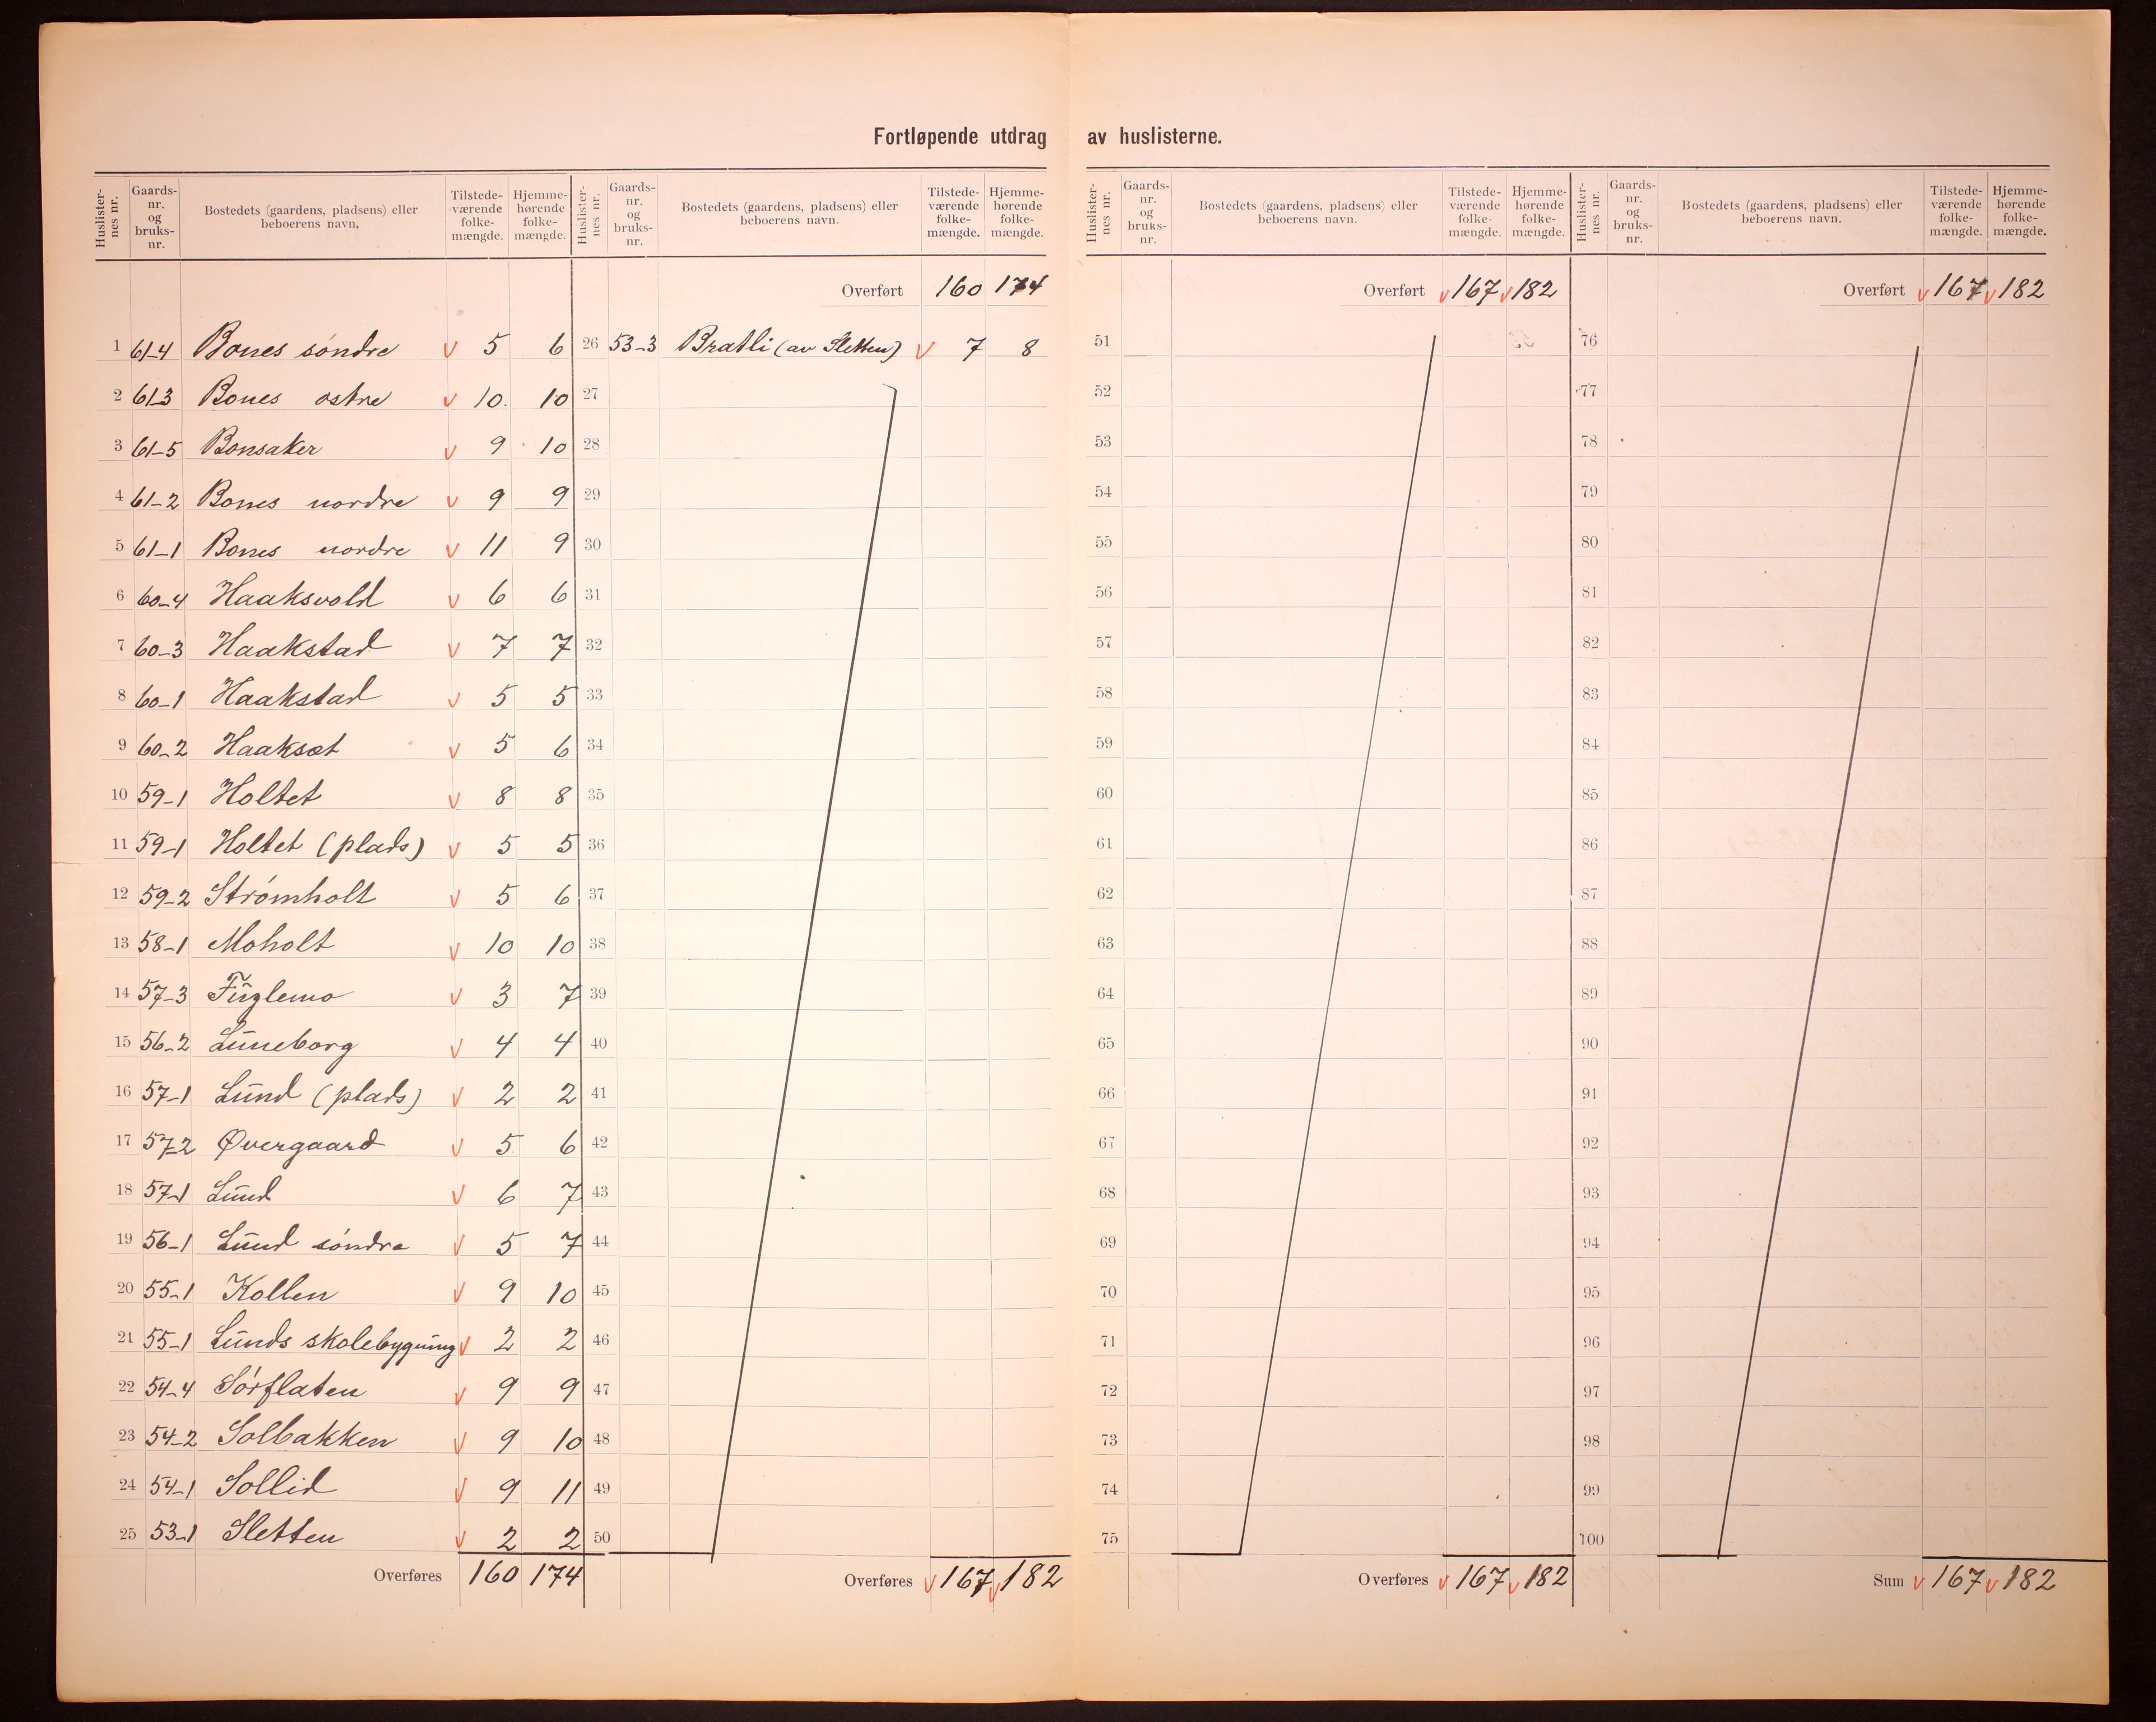 Fortløpende utdrag av huslisterne.
Huslister-nes nr. Gaards-nr. og bruks-nr. Bostedets (gaardens, pladsens) eller beboerens navn, Tilstede-værende folke-mængde. Hjemme-hørende folke-mængde.
1 61-4 Bones søndre v 5 6
2 61-3 Bones østre v 10. 10
3 61-5 Bonsaker v 9 10
4 61-2 Bones nordre v 9 9
5 61-1 Bones nordre v 11 9
6 60-4 Haaksvold v 6 6
7 60-3 Haakstad v 7 7
8 60-1 Haakstad v 5 5
9 60-2 Haaksæt v 5 6
10 59-1 Holtet v 8 8
11 59-1 Holtet (plads) v 5 5
12 59-2 Strømholt v 5 6
13 58-1 Moholt v 10 10
14 57-3 Fuglemo v 3 7
15 56-2 Luneborg v 4 4
16 57-1 Lund (plads) v 2 2
17 57-2 Øvergaard v 5 6
18 57-1 Lund v 6 7
19 56-1 Lund søndre v 5 7
20 55-1 Kollen v 9 10
21 55-1 Lunds skolebygning v 2 2
22 54-4 Sørflaten v 9 9
23 54-2 Solbakken v 9 10
24 54-1 Sollid v 9 11
25 53-1 Sletten v 2 2
Overføres 160 174
Huslister-nes nr. Gaards-nr. og bruks-nr. Bostedets (gaardens, pladsens) eller beboerens navn. Tilstede-værende folke-mængde. Hjemme-hørende folke-mængde.
Overført 160 174
26 53-3 Bratli (av Sletten) v 7 8
27
28
29
30
31
32
33
34
35
36
37
38
39
40
41
42
43
44
45
46
47
48
49
50
Overføres v 167 v 182
Huslister-nes nr. Gaards-nr. og bruks-nr. Bostedets (gaardens, pladsens) eller beboerens navn. Tilstede-værende folke-mængde. Hjemme-hørende folke-mængde.
Overført v 167 v 182
51
52
53
54
55
56
57
58
59
60
61
62
63
64
65
66
67
68
69
70
71
72
73
74
75
Overføres v 167 v 182
Huslister-nes nr. Gaards-nr. og bruks-nr. Bostedets (gaardens, pladsens) eller beboerens navn. Tilstede-værende folke-mængde. Hjemme-hørende folke-mængde.
Overført v 167 v 182
76
77
78
79
80
81
82
83
84
85
86
87
88
89
90
91
92
93
94
95
96
97
98
99
100
Sum v 167 v 182